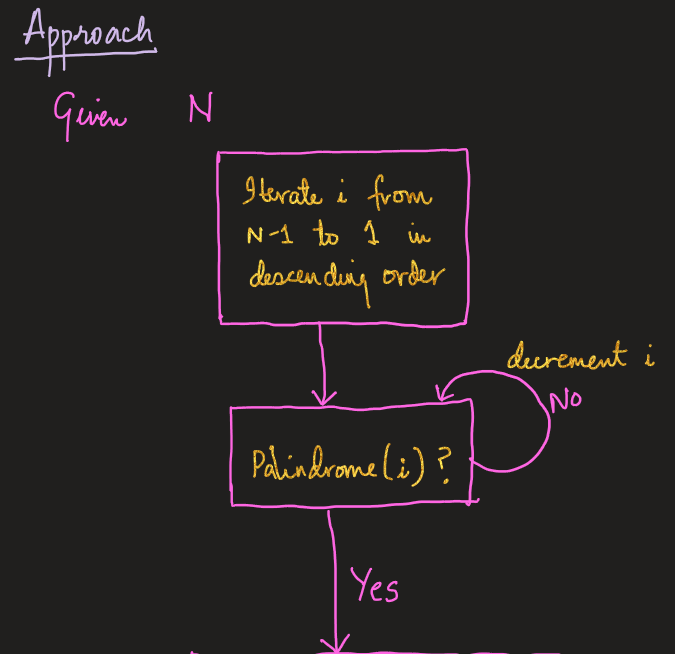 Approach
Given N
Iterate i from
N-1 to 1 in
descending order
decrement i
No
Palindrome(i)?
Yes